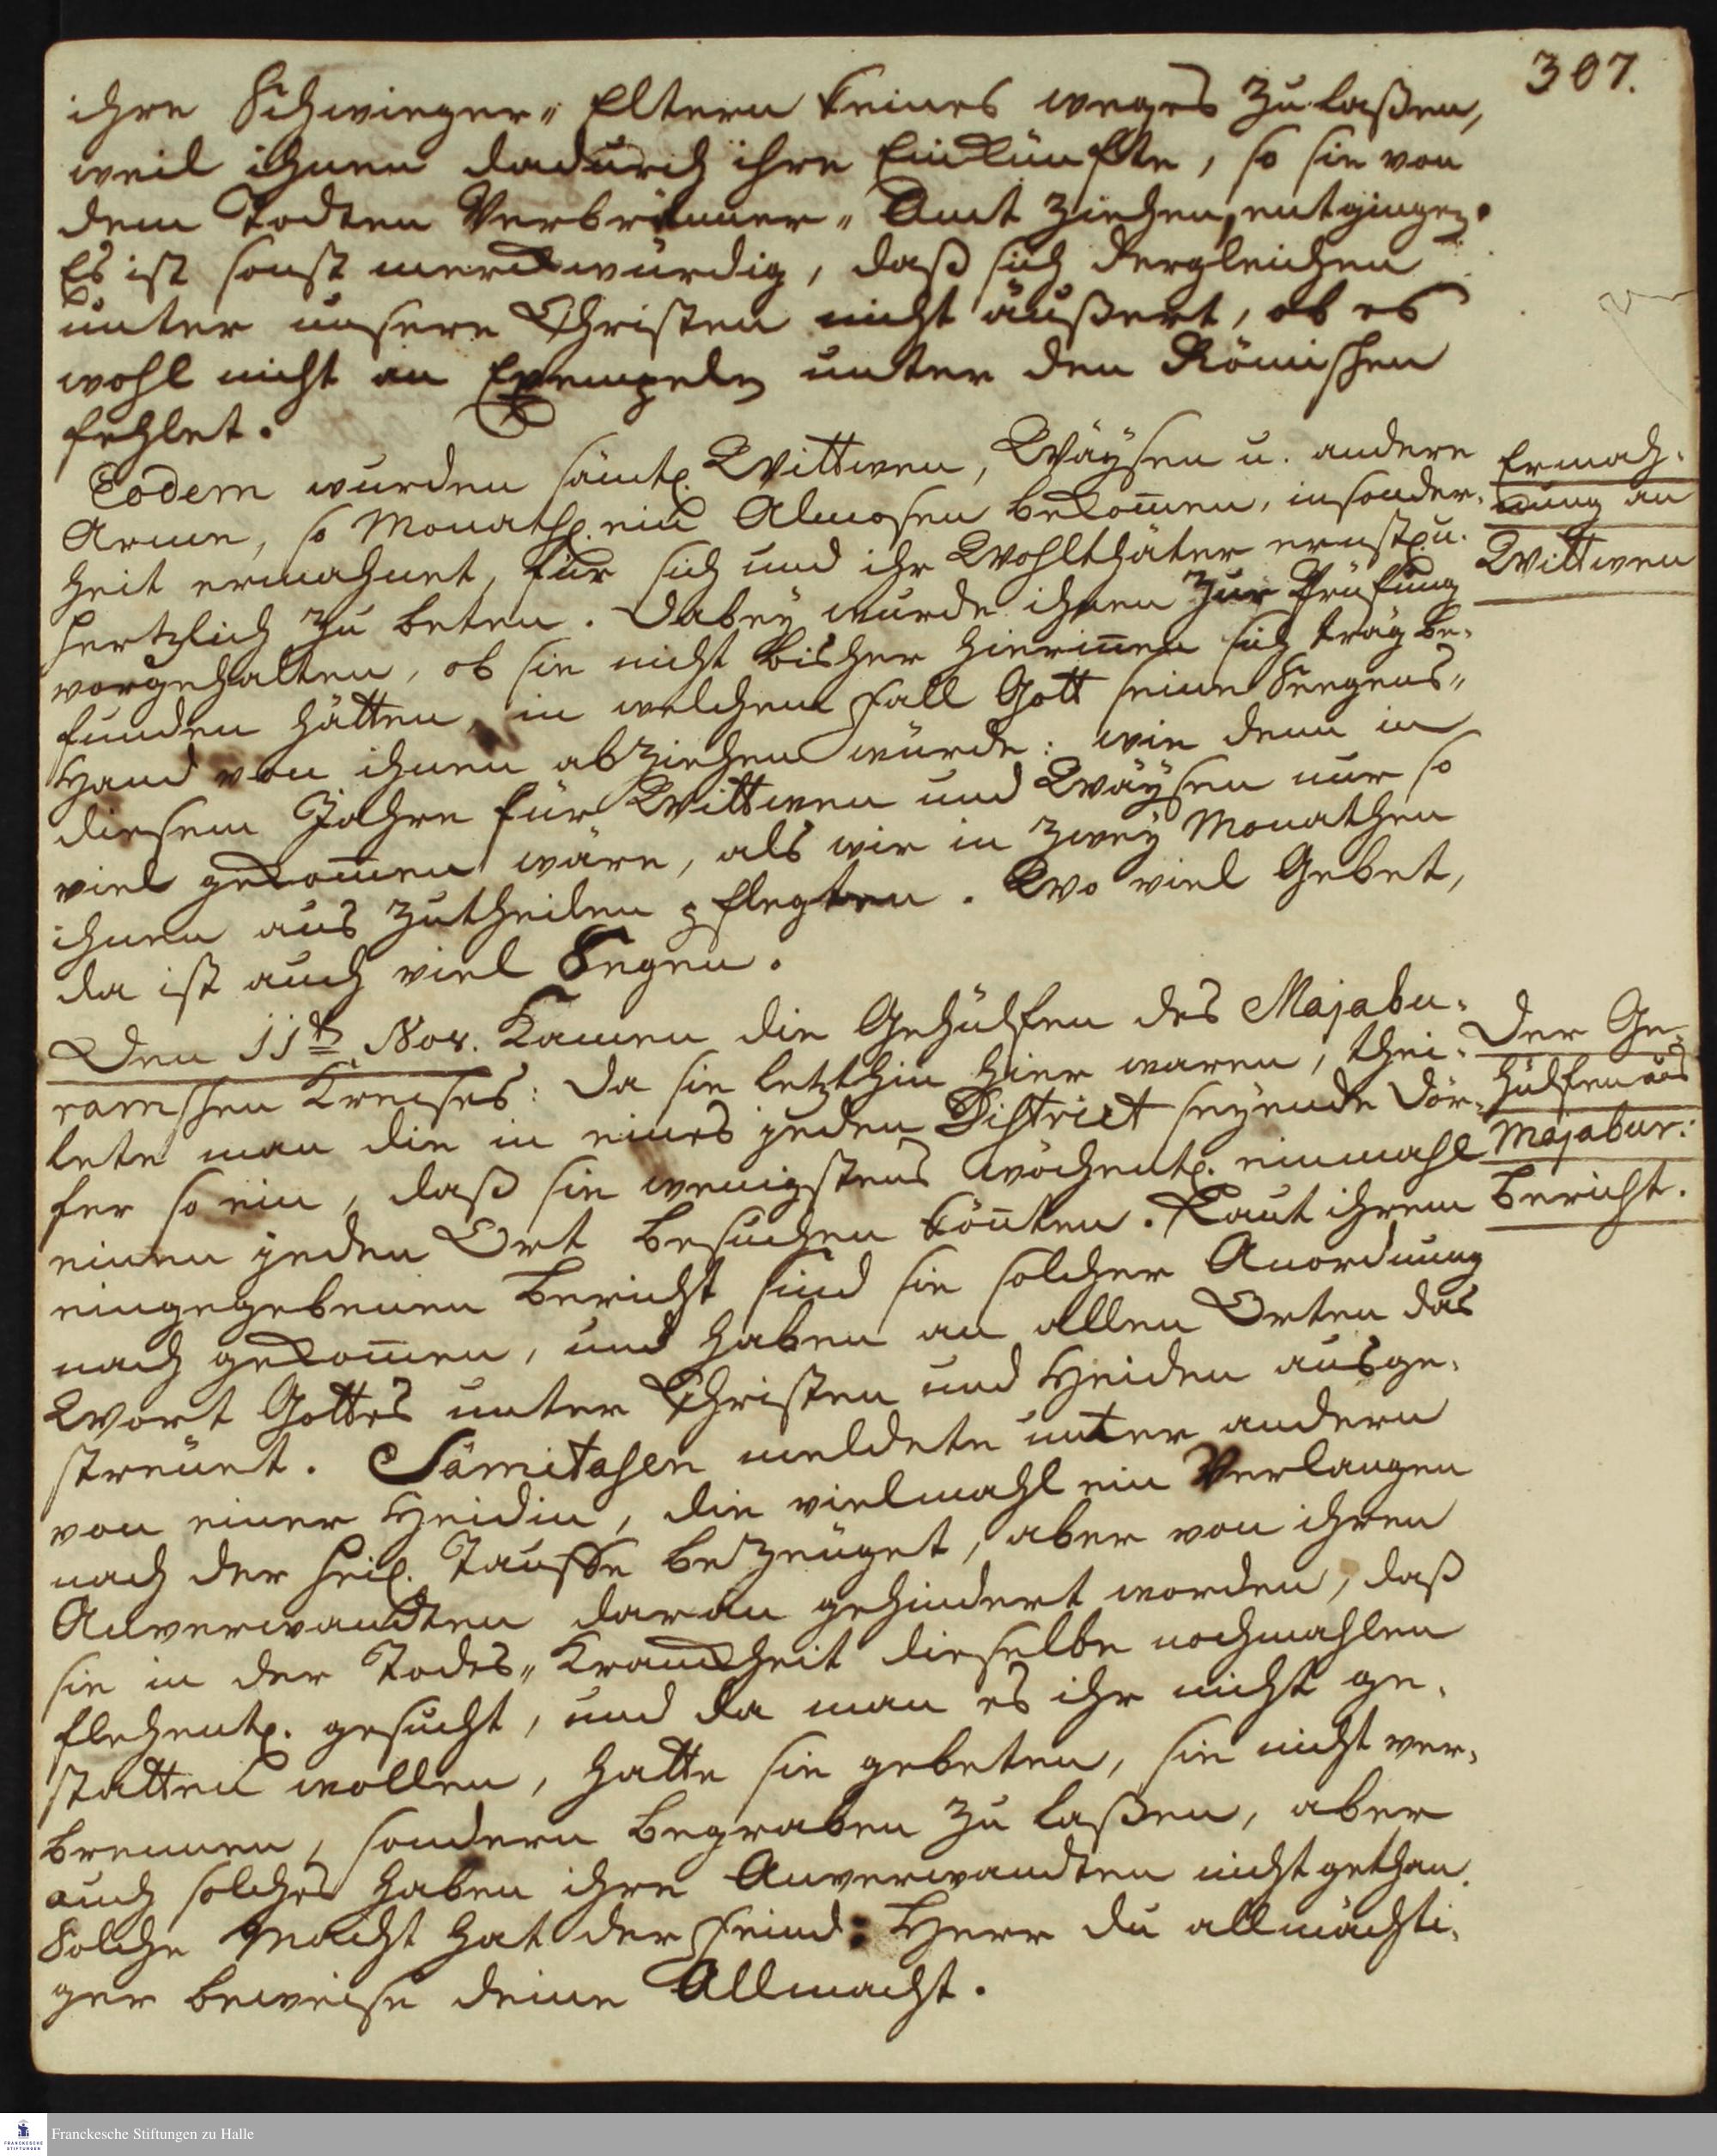 307.
ihre Schwieger-Eltern keines weges zu laßen,
weil ihnen dadurch ihre Einkünfte, so sie von
dem Todten Verbrenner-Amt ziehen, entgingen.
Es ist sonst merckwürdig, daß sich dergleichen
unter unsern Christen nicht äußert, ob es
wohl nicht an Exempeln unter den Römischen
fehlet.
Eodem wurden sämtl. Wittwen, Wäysen u. andere
Arme, so Monathl. ein Almosen bekom̄en, insonder-
heit ermahnet, für sich und ihr Wohlthäter ernstl. u.
hertzlich zu beten. Dabey wurde ihnen zur Prüfung
vorgehalten, ob sie nicht bisher hierin̄en sich träg be-
funden hätten, in welchem Fall Gott seine Seegens-
Hand von ihnen abziehen würde: wie denn in
diesem Jahre für Wittwen und Wäysen nur so
viel gekom̄en wäre, als wir in zwey Monathen
ihnen aus zutheilen pflegten. Wo viel Gebet,
da ist auch viel Segen.
Ermah-
nung an
Wittwen
Den 11t. Nov. Kamen die Gehülfen des Majabu-
ramschen Kreises: Da sie letzthin hier waren, thei-
lete man die in eines jeden District seyende Dör-
fer so ein, daß sie wenigstens wöchentl. einmahl
einen jeden Ort besuchen kön̄ten. Laut ihrem
eingegebenen Bericht sind sie solcher Anordnung
nach gekom̄en, und haben an allen Orten das
Wort Gottes unter Christen und Heiden ausge-
streuet. Sāmitasen meldete unter andern
von einer Heidin, die vielmahl ein Verlangen
nach der heil. Tauffe bezeuget, aber von ihren
Anverwandten daran gehindert worden, daß
sie in der Todes-Kranckheit dieselbe nochmahlen
flehentl. gesucht, und da man es ihr nicht ge-
statten wollen, hatte sie gebeten, sie nicht ver-
brennen, sondern begraben zu laßen, aber
auch solches haben ihre Anverwandten nicht gethan.
Solche Macht hat der Feind: Herr du allmächti-
ger beweise deine Allmacht.
Der Ge-
hülfen aus
Majabur:
Bericht.
Franckesche Stiftungen zu Halle
FRANCKESCHE
STIFTUNGEN